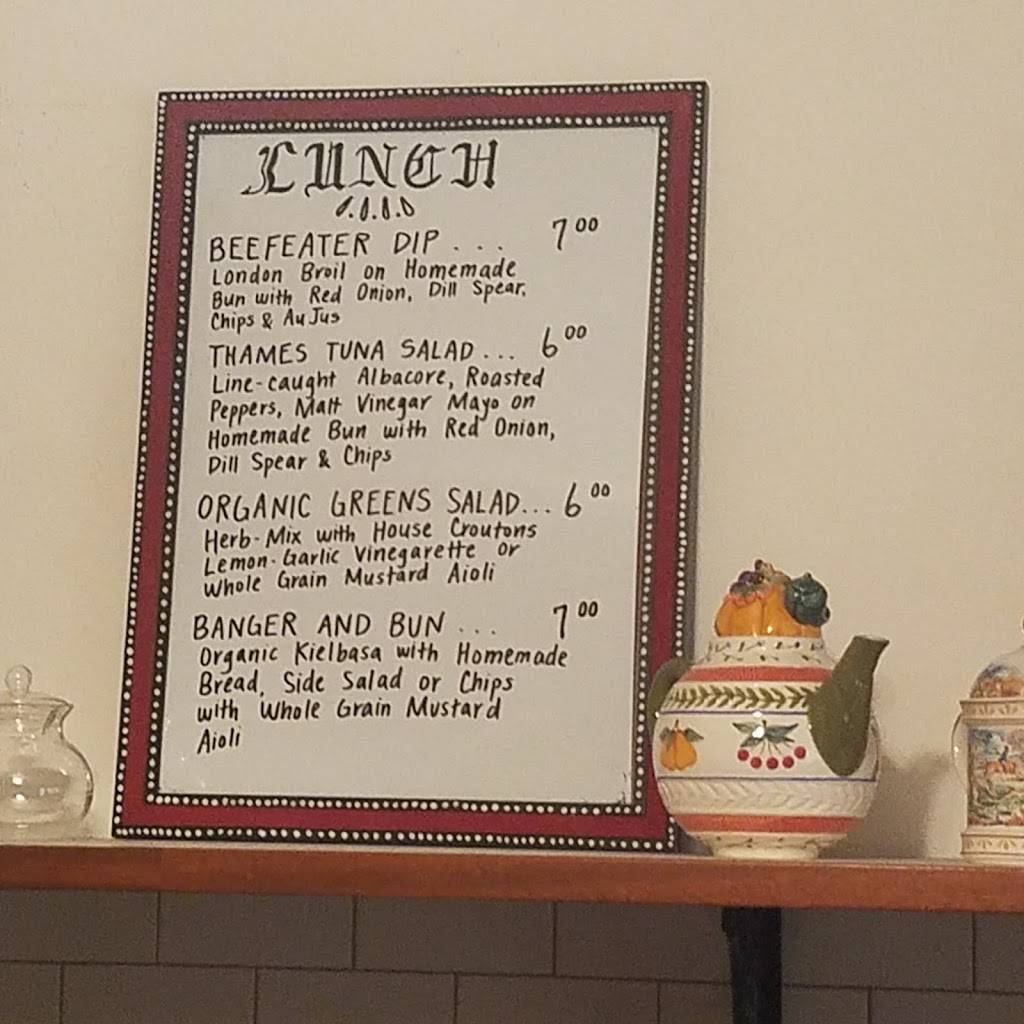 LUNCH
BEEFEATER DIP ... 7 00
London Broil on Homemade
Bun with Red Onion, Dill Spear,
Chips & Au Jus
THAMES TUNA SALAD ... 6 00
Line-caught Albacore, Roasted
Peppers, Malt Vinegar Mayo on
Homemade Bun with Red Onion,
Dill Spear & Chips
ORGANIC GREENS SALAD... 6 00
Herb-Mix with House Croutons
Lemon-Garlic Vinegarette or
Whole Grain Mustard Aioli
BANGER AND BUN ... 7 00
Organic Kielbasa with Homemade
Bread, Side Salad or Chips
with Whole Grain Mustard
Aioli